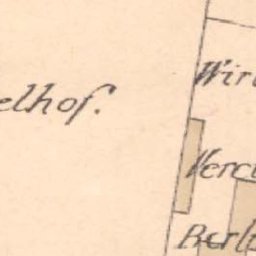 elhof.
Wir
Verei
Berl